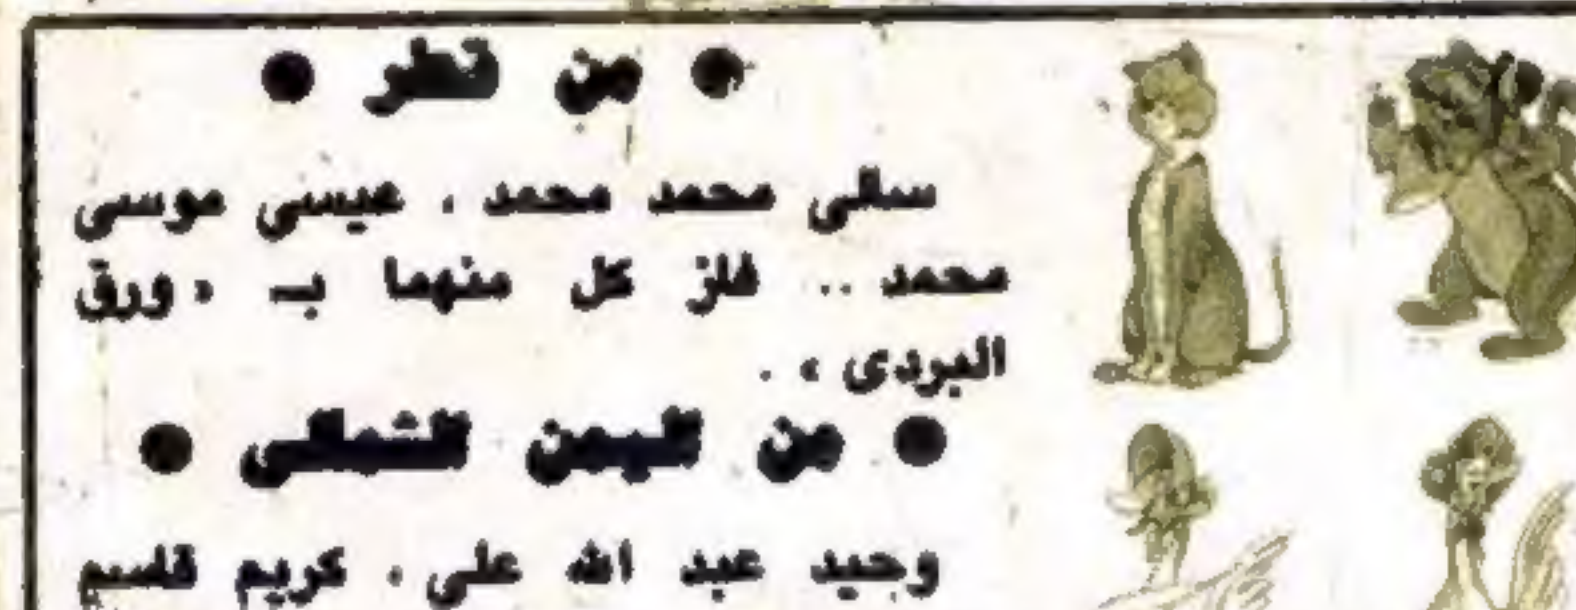 ● من قطر ●
سالى محمد محمد ، عيسى موسى
محمد .. فاز كل منهما بـ « ورق
البردى » .
● من اليمن الشمالى ●
وحيد عبد الله على ، كريم قاسم